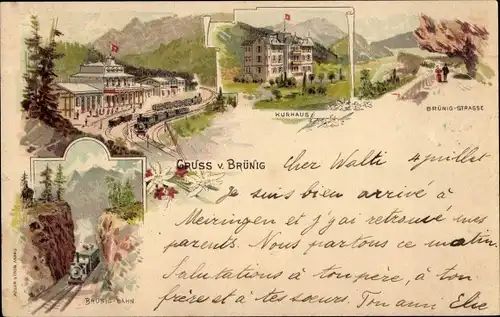 KURHAUS
BRÜNIG-STRASSE
GRUSS V. BRÜNIG
Cher Walti 4 juillet
Je suis bien arrivé à
Meiringen et j'y ai retrouvé mes
parents. Nous partons ce matin.
Salutations à ton père, à ton
frère et à tes sœurs. Ton ami Elie
BRÜNIG-BAHN